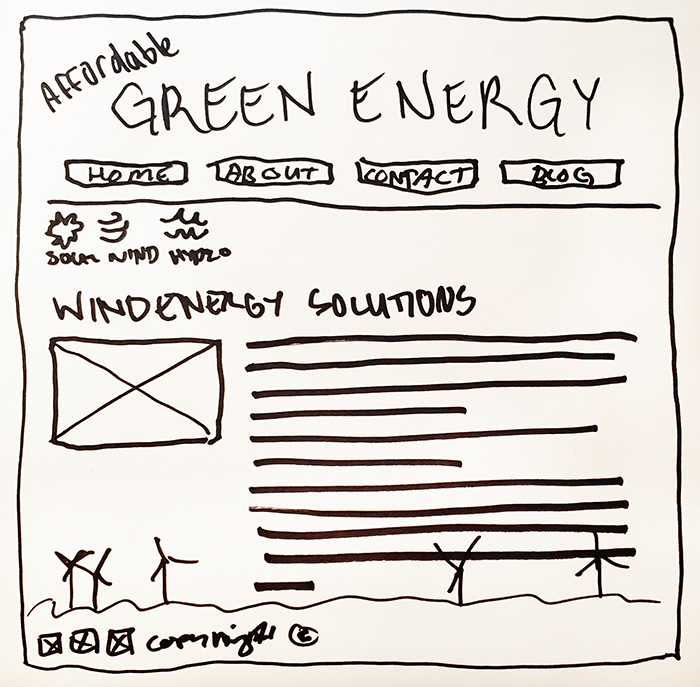 Affordable
GREEN ENERGY
HOME ABOUT CONTACT BLOG
SOLAR WIND HYDRO
WIND ENERGY SOLUTIONS
copyright ©